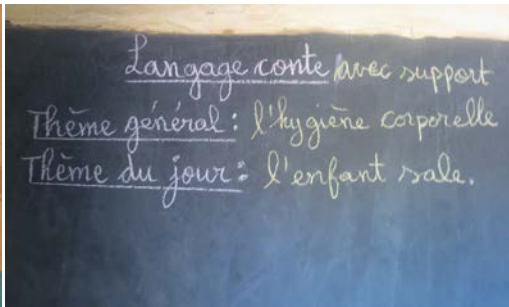 Langage conte avec support
Thème général : l'hygiène corporelle
Thème du jour : l'enfant sale.